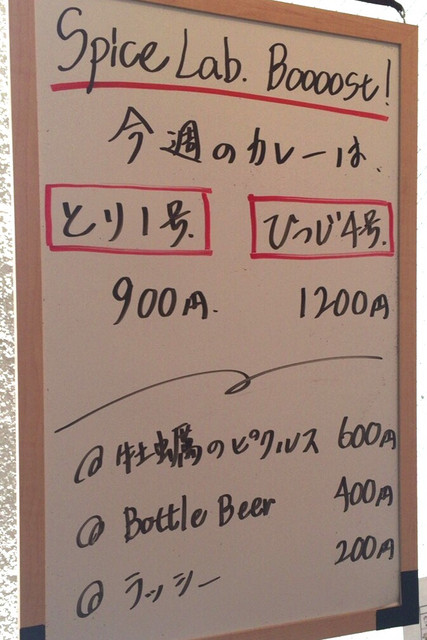 Spice Lab. Boooost!
今週のカレーは、
とり1号. ひつじ4号.
900円. 1200円
@ 牡蠣のピクルス 600円
@ Bottle Beer 400円
@ ラッシー 200円